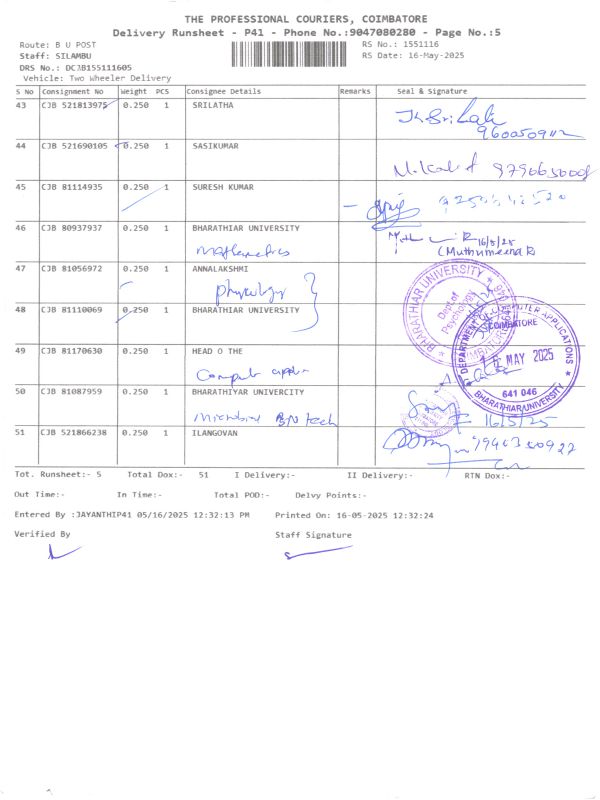 THE PROFESSIONAL COURIERS, COIMBATORE
Delivery Runsheet - P41 - Phone No.:9047080280 - Page No.:5
Route: B U POST
RS No.: 1551116
Staff: SILAMBU
RS Date: 16-May-2025
DRS No.: DCJB155111605
Vehicle: Two Wheeler Delivery
S No Consignment No Weight PCS Consignee Details Remarks Seal & Signature
43 CJB 521813975 0.250 1 SRILATHA
44 CJB 521690105 0.250 1 SASIKUMAR
45 CJB 81114935 0.250 1 SURESH KUMAR
46 CJB 80937937 0.250 1 BHARATHIAR UNIVERSITY
Mathematics
16/5/25
(Muthumeena R)
47 CJB 81056972 0.250 1 ANNALAKSHMI
48 CJB 81110069 0.250 1 BHARATHIAR UNIVERSITY
BHARATHIAR UNIVERSITY
Dept of
Psychology
COIMBATORE
MAY 2025
641 046
BHARATHIAR UNIVERSITY
49 CJB 81170630 0.250 1 HEAD O THE
50 CJB 81087959 0.250 1 BHARATHIYAR UNIVERCITY
16/5/25
51 CJB 521866238 0.250 1 ILANGOVAN
Tot. Runsheet:- 5 Total Dox:- 51 I Delivery:- II Delivery:- RTN Dox:-
Out Time:- In Time:- Total POD:- Delvy Points:-
Entered By :JAYANTHIP41 05/16/2025 12:32:13 PM Printed On: 16-05-2025 12:32:24
Verified By Staff Signature